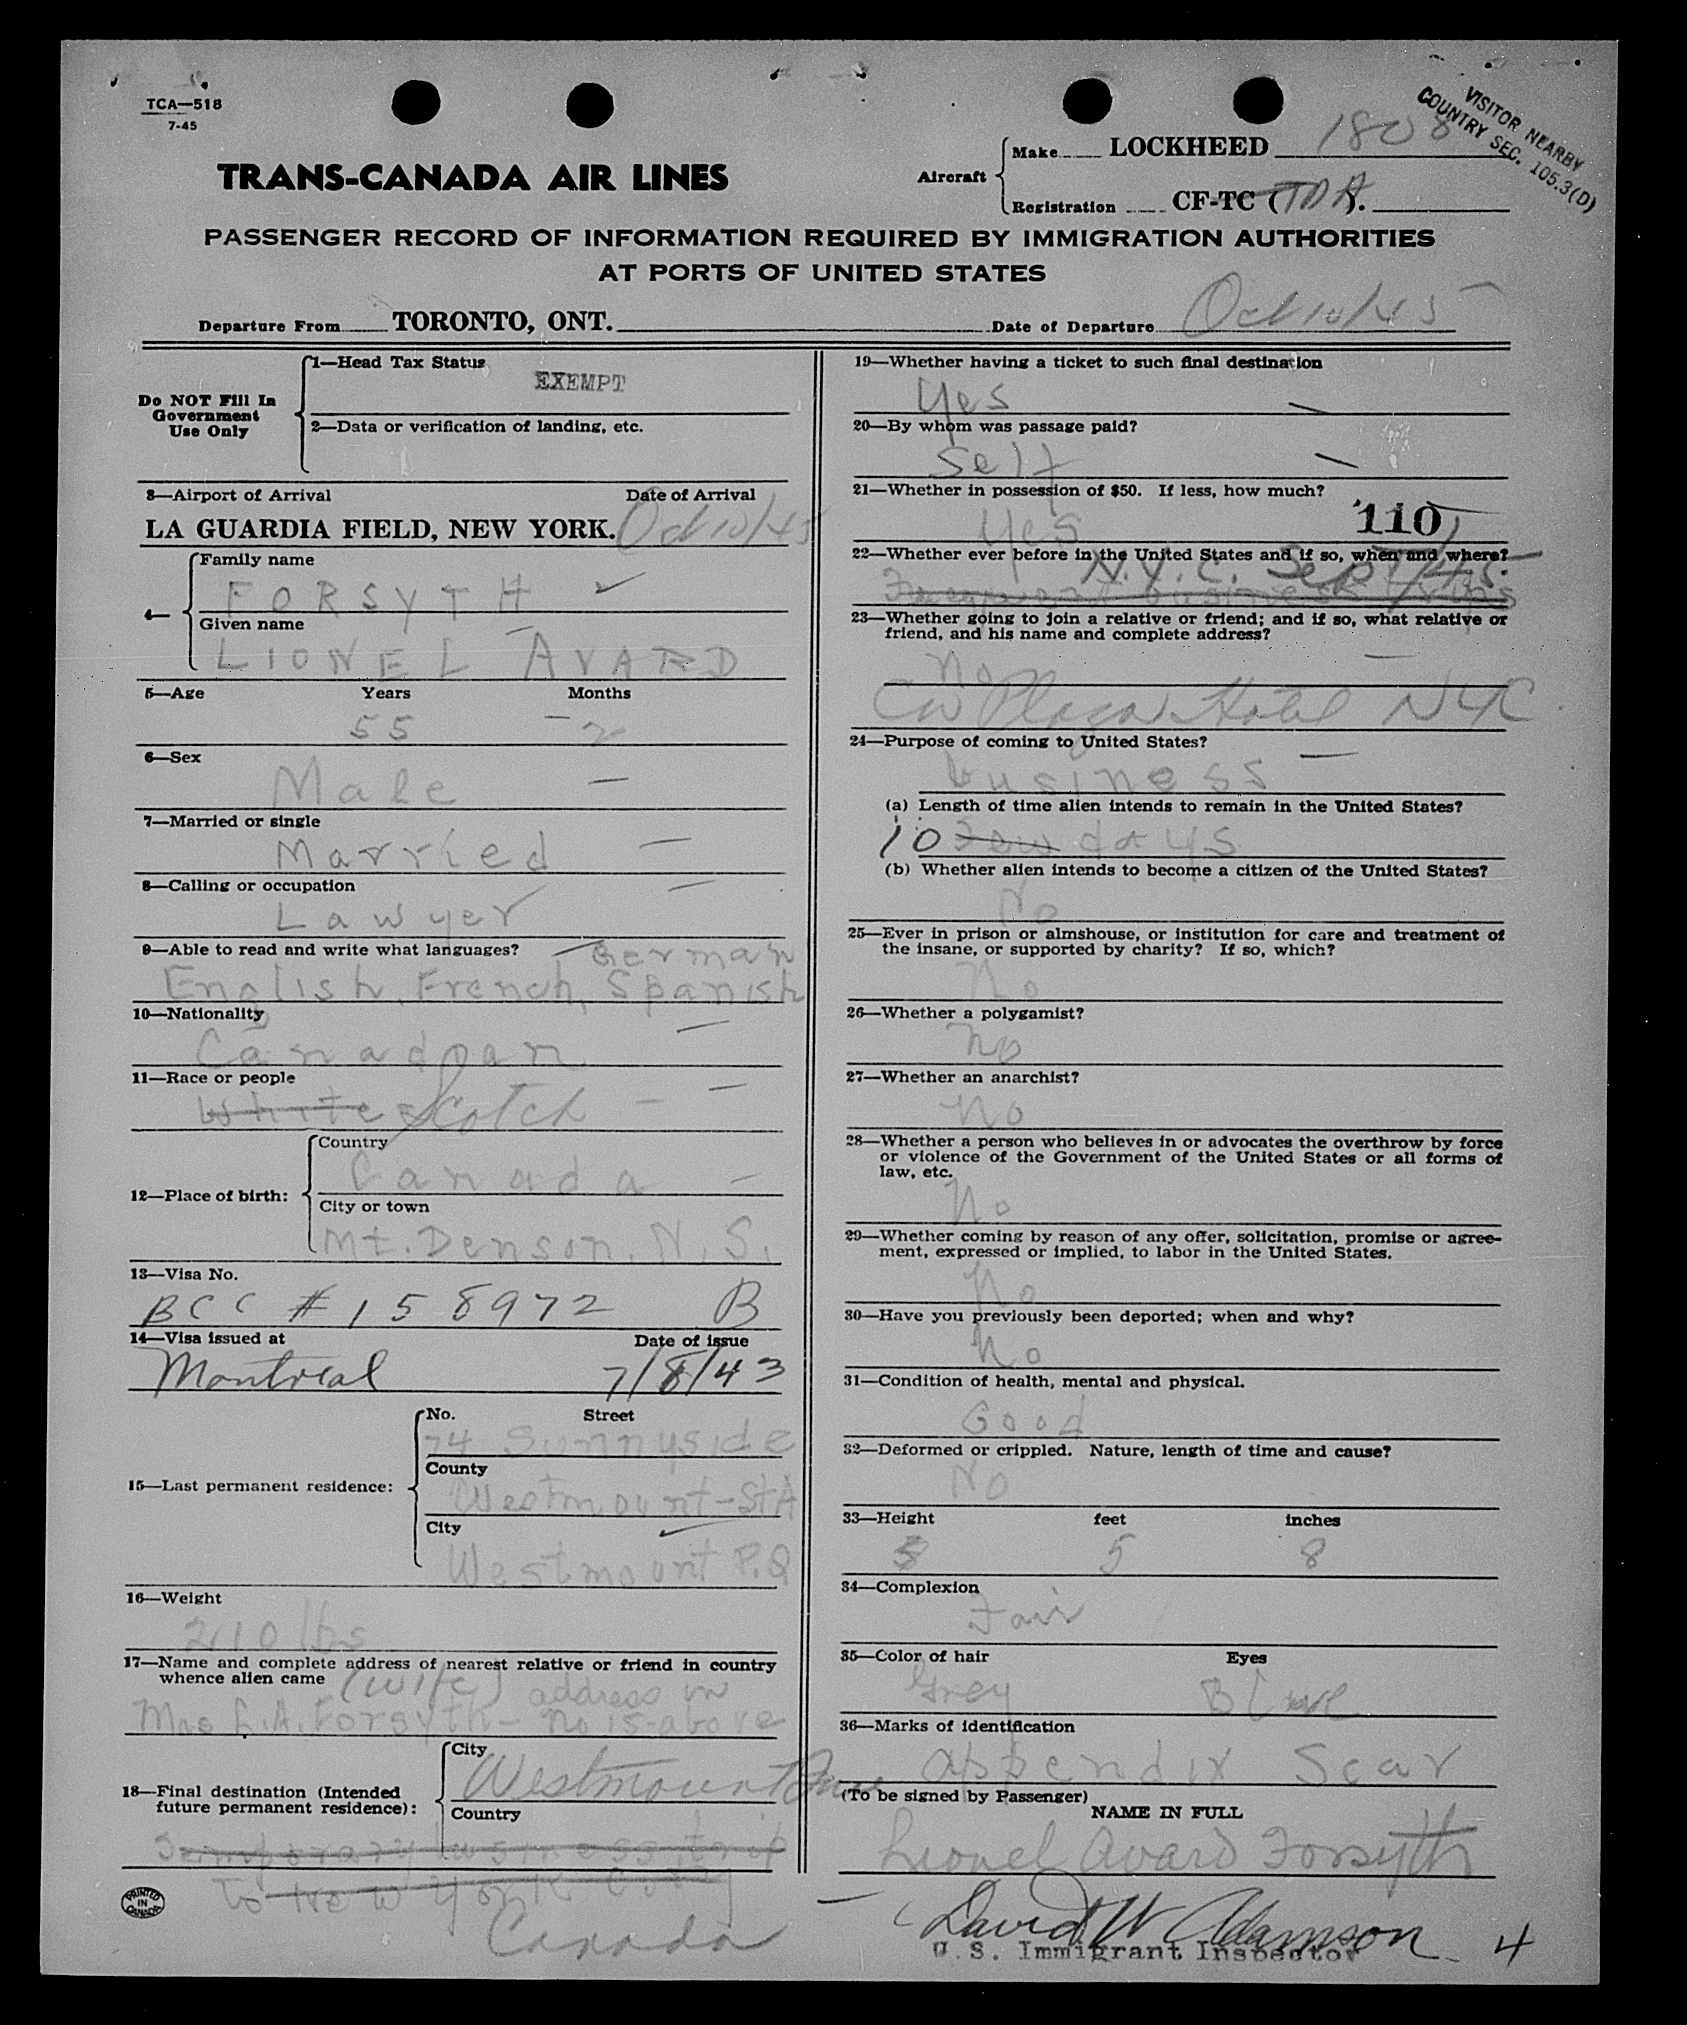 TCA—518
7-45
VISITOR NEARBY
COUNTRY SEC. 105.3(D)
TRANS-CANADA AIR LINES
Aircraft
Make LOCKHEED 1808
Registration CF-TC (TDA).
PASSENGER RECORD OF INFORMATION REQUIRED BY IMMIGRATION AUTHORITIES
AT PORTS OF UNITED STATES
Departure From TORONTO, ONT. Date of Departure Oct 10/45
Do NOT Fill In
Government
Use Only
1—Head Tax Status
EXEMPT
2—Data or verification of landing, etc.
3—Airport of Arrival Date of Arrival
LA GUARDIA FIELD, NEW YORK. Oct 10/45
4—
Family name
FORSYTH
Given name
LIONEL AVARD
5—Age Years Months
55 2
6—Sex
Male
7—Married or single
Married
8—Calling or occupation
Lawyer
9—Able to read and write what languages? German
English, French, Spanish
10—Nationality
Canadian
11—Race or people
White Scotch
12—Place of birth:
Country
Canada
City or town
Mt. Denson, N.S.
13—Visa No.
BCC # 158972 B
14—Visa issued at Date of issue
Montreal 7/8/43
15—Last permanent residence:
No. Street
74 Sunnyside
County
Westmount-StA
City
Westmount P.Q
16—Weight
210 lbs
17—Name and complete address of nearest relative or friend in country
whence alien came (wife) address in
Mrs L.A. Forsyth - no 15-above
18—Final destination (Intended
future permanent residence):
City
Westmount
Country
Temporary business trip
to New York City
Canada
PRINTED
IN
CANADA
19—Whether having a ticket to such final destination
Yes
20—By whom was passage paid?
Self
21—Whether in possession of $50. If less, how much?
Yes 110
22—Whether ever before in the United States and if so, when and where?
N.Y.C. Sept/45.
Frequent business trips
23—Whether going to join a relative or friend; and if so, what relative or
friend, and his name and complete address?
No
Plaza Hotel NYC
24—Purpose of coming to United States?
business
(a) Length of time alien intends to remain in the United States?
10 Few days
(b) Whether alien intends to become a citizen of the United States?
No
25—Ever in prison or almshouse, or institution for care and treatment of
the insane, or supported by charity? If so, which?
No
26—Whether a polygamist?
No
27—Whether an anarchist?
No
28—Whether a person who believes in or advocates the overthrow by force
or violence of the Government of the United States or all forms of
law, etc.
No
29—Whether coming by reason of any offer, solicitation, promise or agree-
ment, expressed or implied, to labor in the United States.
No
30—Have you previously been deported; when and why?
No
31—Condition of health, mental and physical.
Good
32—Deformed or crippled. Nature, length of time and cause?
No
33—Height feet inches
5 8
34—Complexion
Fair
35—Color of hair Eyes
Grey Blue
36—Marks of identification
appendix Scar
(To be signed by Passenger)
NAME IN FULL
Lionel Avard Forsyth
David W Adamson
U.S. Immigrant Inspector 4